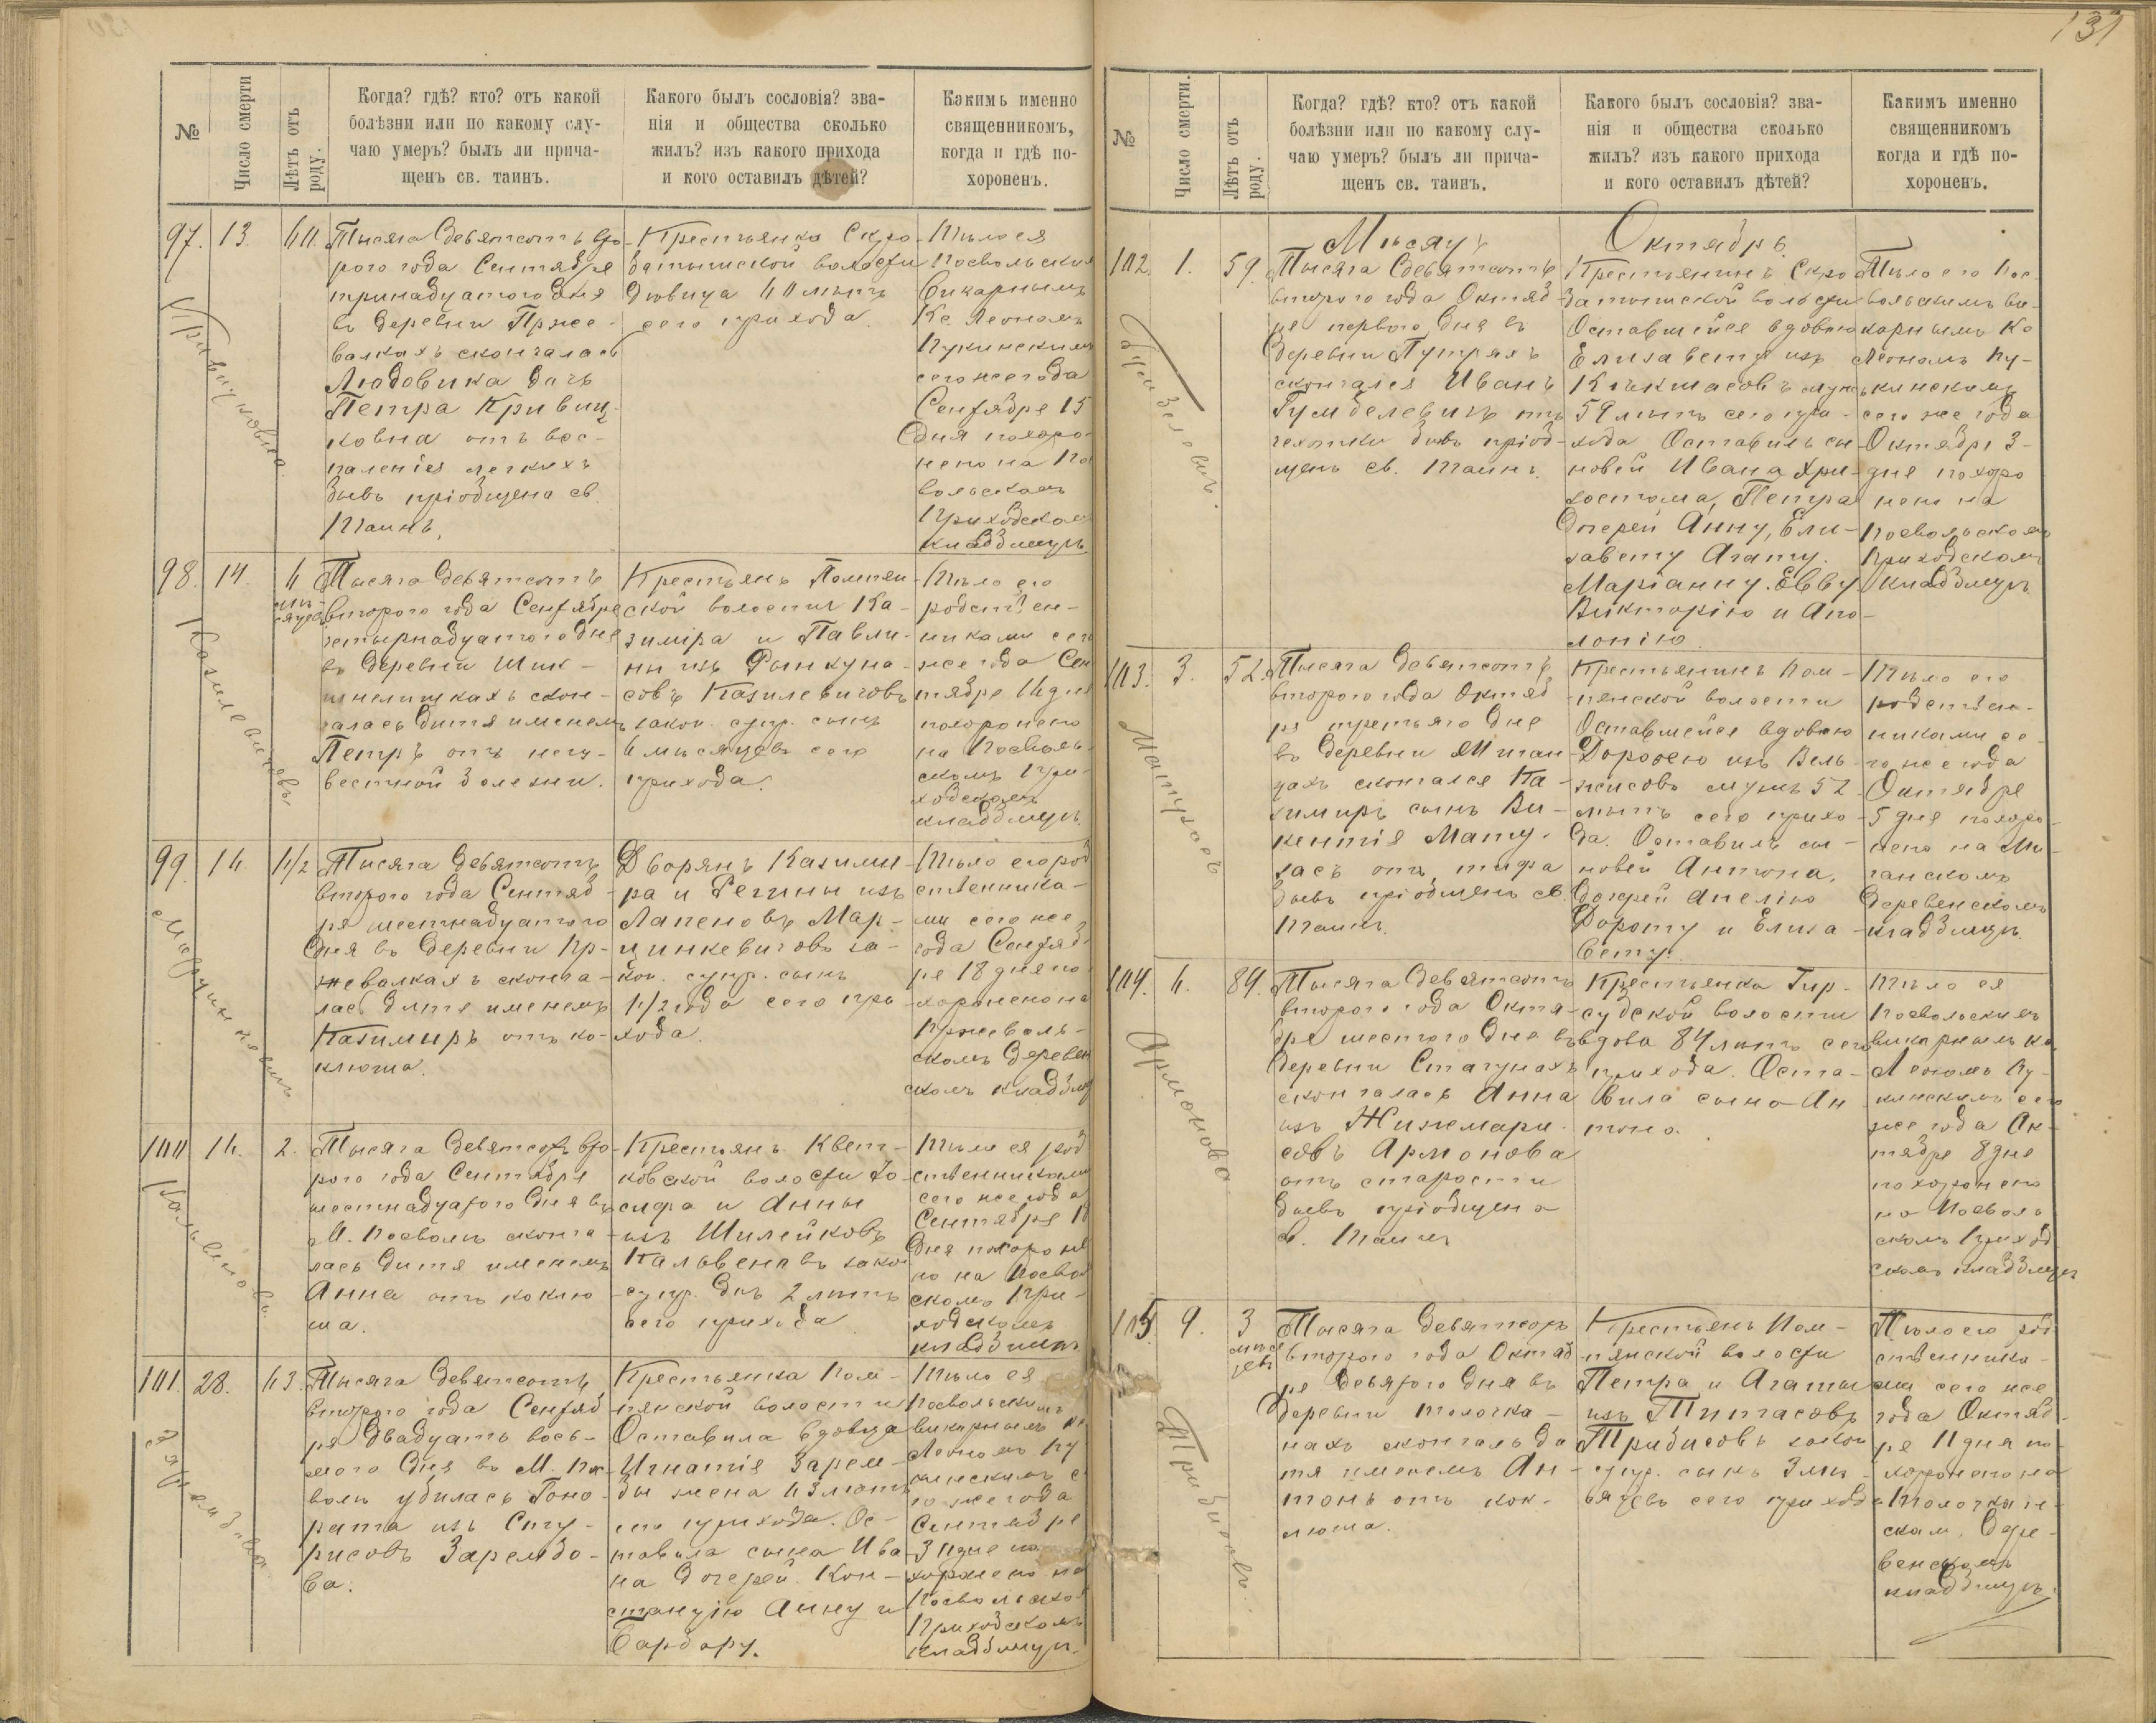 131
№
Число смерти
Лѣтъ отъ роду.
Когда? гдѣ? кто? отъ какой
болѣзни или по какому слу-
чаю умеръ? былъ ли прича-
щенъ св. таинъ.
Какого былъ сословія? зва-
нія и общества сколько
жилъ? изъ какого прихода
и кого оставилъ дѣтей?
Какимъ именно
священникомъ,
когда и гдѣ по-
хороненъ.
97.
13.
40.
Тысяча девятсотъ вто-
рого года Сентября
тринадцатого дня
въ деревни Прже-
валкахъ скончалась
Людовика дочь
Петра Кривиц-
ковна отъ вос-
паленія легкихъ
бывъ пріобщена св.
Таинъ.
Крестьянка Скро-
батышской волости
Дѣвица 40 лѣтъ
сего прихода.
Тѣло ея
Посвольским
Викарнымъ
Кс. Леономъ
Пукинскимъ
сего же года
Сентября 15
Дня похоро-
нено на По
вольскомъ
Приходском
кладбищѣ.
98.
14.
6
мѣ-
сяцев
Казилевичевъ
Тысяча девятсотъ
второго года Сентября
четырнадцатого дня
въ деревни Шик-
шнелишкахъ скон-
чалась дитя именемъ
Петръ отъ неиз-
вестной болезни.
Крестьянъ Помпян-
ской волости Ка-
зиміра и Павли-
ны изъ Рынкуна-
совъ Казилевичовъ
закон. супр. сынъ
6 мѣсяцевъ сего
прихода.
Тѣло его
родствен-
никами сего
же года Сен
тября 16 дня
похоронено
на Посволь-
скомъ При-
ходскомъ
кладбищѣ.
99.
16.
1 1/2
Марцинкевичъ
Тысяча девятсотъ
второго года Сентяб-
ря шестнадцатого
дня въ деревни Пр-
жевалкахъ сконча-
лась дитя именемъ
Казимиръ отъ ко-
клюша.
Дворянъ Казими-
ра и Регины изъ
Лапеновъ Мар-
цинкевичовъ за-
кон. супр. сынъ
1 1/2 года сего при-
хода.
Тѣло его род
ственника-
ми сего же
года Сентяб-
ря 18 дня по-
хоронено на
Пржеволь-
скомъ деревен
скомъ кладбищ
100
16.
2.
Кальвенова.
Тысяча девятсотъ вто-
рого года Сентября
шестнадцатого дня въ
М. Посволѣ сконча-
лась дитя именемъ
Анна отъ коклю
ша.
Крестьянъ Квет-
ковской волости Іо-
сифа и Анны
изъ Шилейковъ
Кальвеновъ закон
супр. дочь 2 лѣтъ
сего прихода
Тѣло ея род
ственниками
сего же года
Сентября 18
Дня похороне
но на Посволь
скомъ При-
ходскомъ
кладбищѣ
101.
28.
43.
Зарембова
Тысяча девятсотъ
второго года Сентяб
ря двадцать вось-
мого дня въ М. Пос-
волѣ убилась Гоно-
рата изъ Сту-
рисовъ Зарембо-
ва.
Крестьянка Пом-
пянской волости
Оставила вдовца
Игнатія Зарем-
бы жена 43 лѣтъ
сего прихода. Ос-
тавила сына Ива
на дочерей. Кон-
станцію Анну и
Барбару.
Тѣло ея
Посвольскимъ
викарнымъ Кс
Леономъ Пу
кинскимъ се
го же года
Сентября
30 дня по
хоронено на
Посвольско
Приходскомъ
кладбищѣ.
№
Число смерти.
Лѣтъ отъ роду.
Когда? гдѣ? кто? отъ какой
болѣзни или по какому слу-
чаю умеръ? былъ ли прича-
щенъ св. таинъ.
Какого былъ сословія? зва-
нія и общества сколько
жилъ? изъ какого прихода
и кого оставилъ дѣтей?
Какимъ именно
священникомъ
когда и гдѣ по-
хороненъ.
Мѣсяцъ Октябрь.
102.
1.
59.
Тысяча девятсотъ
второго года Октяб-
ря первого дня въ
Деревни Путряхъ
скончался Иванъ
Гумбелевичъ отъ
чехотки бывъ пріоб-
щенъ св. Таинъ.
Крестьянинъ Скро
батышской волости
Оставшейся вдовою
Елизавета изъ
мужъ
59 лѣтъ сего при-
хода Оставилъ сы-
новей Ивана, Хри-
зостома, Петра
Дочерей Анну, Ели-
завету Агату.
Маріанну. Евву
Викторію и Апо-
лонію.
Тѣло его Пос-
вольскимъ ви-
карнымъ Кс
Леономъ Пу-
кинскимъ
сего же года
Октября 3-
дня похоро
нено на
Посвольскомъ
Приходскомъ
кладбищѣ.
103.
3.
52.
Матулась
Тысяча девятсотъ
второго года Октяб
ря третьяго дня
въ деревни Миган
цахъ скончался Ка-
зимиръ сынъ Ви-
кентія Мату-
ласъ отъ тифа
бывъ пріобщенъ св.
Таинъ.
Крестьянинъ Пом-
пянской волости
Оставшейся вдовою
Доротею изъ Вель-
жисовъ мужъ 52
лѣтъ сего прихо-
да. Оставилъ сы-
новей Антона,
дочерей Анелію
Дороту и Елиза-
вету.
Тѣло его
родствен-
никами се-
го же года
Октября
5 дня похоро-
нено на Ми-
ганскомъ
Деревенскомъ
кладбищѣ.
104.
6.
84.
Армонова.
Тысяча девятсотъ
второго года Октя-
бря шестого дня въ
деревни Стагунахъ
скончалась Анна
изъ Жижмари-
совъ Армонова
отъ старости
бывъ пріобщена
св. Таинъ
Крестьянка Гир-
судской волости
вдова 84 лѣтъ сего
прихода. Оста-
вила сына Ан
тона.
Тѣло ея
Посвольскимъ
викарнымъ Кс
Леономъ Пу-
кинскимъ сего
же года Ок-
тября 8 дня
похоронено
на Посволь
скомъ Приход
скомъ кладбищѣ
105.
9.
3
мѣся
цевъ
Трибисовъ.
Тысяча девятсотъ
второго года Октяб
ря девятого дня въ
Деревни Толочка-
нахъ скончалъ ди
тя именемъ Ан-
тонъ отъ кок-
люша.
Крестьянъ Пом-
пянской волости
Петра и Агаты
изъ Титасовъ
Трибисовъ закон
супр. сынъ 3 мѣ-
сяцевъ сего прихода
Тѣло его род
ственника-
ми сего же
года Октяб-
ря 11 дня по-
хоронено на
Толочкан-
скомъ Дере-
венскомъ
кладбищѣ.